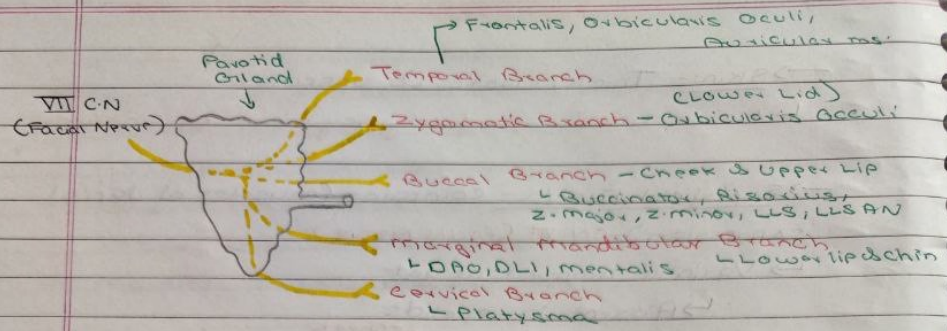 Frontalis, Orbicularis Oculi,
Auricular ms.
Parotid
Gland
Temporal Branch
VII C.N
(Facal Nerve)
(Lower Lid)
Zygomatic Branch - Orbicularis Occuli
Buccal Branch - Cheek & Upper Lip
Buccinator, Risorius,
Z.major, Z.minor, LLS, LLSAN
Marginal Mandibular Branch
DAO, DLI, mentalis
Lower lip & chin
Cervical Branch
Platysma